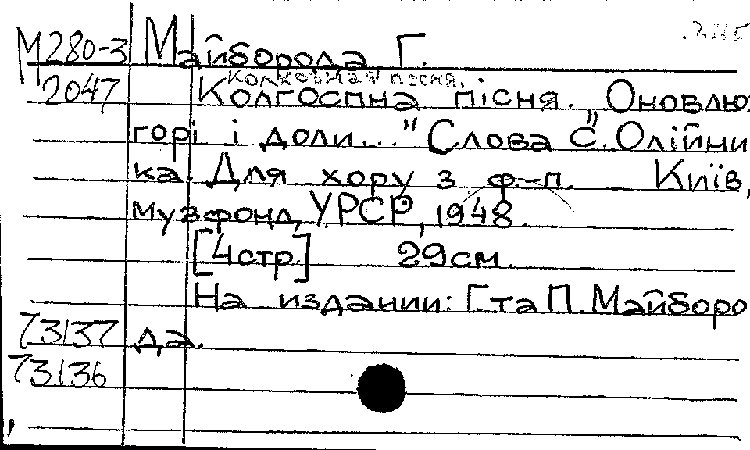 М280-3 Майборода Г.
Колхозная песня.
2047 Колгоспна пісня. „Оновлю
горі і доли..." Слова С. Олійни
ка. Для хору з ф-п. Київ,
Музфонд УРСР, 1948.
[4стр.] 29см.
На издании: Г. та П. Майборо
73137 да.
73136